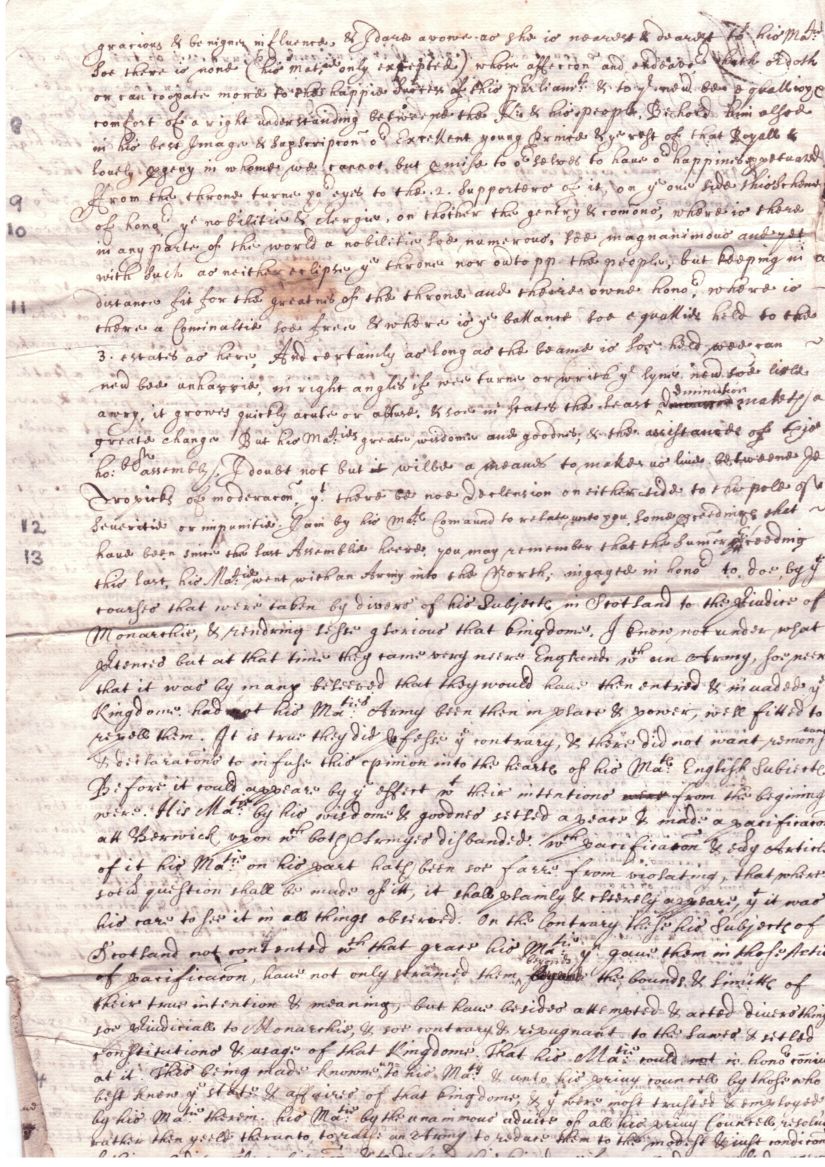 gracious & benigne influence, & I dare avowe as she is nearest & dearest to his Matie
soe there is none (his Matie only excepted) whose affeccon and endeavor hath or doth
or can coopate more to the happie succes of this parliamt & to ye new bee equall wth ye
comfort of a right understanding betweene the K: & his people. Behold him alsoe
8
in his best Image & Supscripcon or Excellent young Prince & ye rest of that Royall &
lovely pgeny in whome wee cannot but pmise to or selves to have or happines ppetuated
9
From the throne turne yor eyes to the .2. Supporters of it, on ye one side this Scheme
10
of honor ye nobilitie & clergie, on thother the gentry & comons, where is there
in any parte of the world a nobilitie soe numerous, soe magnanimous and yet
with such as neither eclipse ye throne nor owtopp the people, but keeping in a
11
distance fit for the greatnes of the throne and theire owne honor, where is
there a Cominaltie soe free & where is ye ballance soe equallie held to the
3. estates as here, And certainly as long as the beame is soe held wee can
nevr bee unhappie, in right angles if wee turne or writh ye lyne nevr soe little
awry, it growes quickly acute or obtuse, & soe in states the least diminution maketh a
greate change But his Maties greate wisdome and goodnes, & the assistance of this
hoble assembly, I doubt not but it wilbe a meanes to make us live betweene ye
Tropicks of moderacon, yt there be noe Declension on either side to the pole of
12
severitie or impunitie. I am by his Mats Comaund to relate unto you some pceedings that
13
have been since the last Assemblie heere, you may remember that the sumer pceeding
this last, his Matie went with an Army into the North, ingaged in honor to doe, by ye
courses that were taken by divers of his subjects in Scotland to the pjudice of
Monarchie, & rendring lesse glorious that kingdome, I know not under what
ptences but at that time they came very neere England wth an Army, soe neer
that it was by many beleeved that they would have then entred & invaded ye
Kingdome had not his Maties Army been then in place & power, well fitted to
repell them. It is true they did pfesse ye contrary, & there did not want remon
& declaracons to infuse this opinion into the hearts of his Mats English Subiects
Before it could appeare by ye effect wt their intentions were from the begining
were. His Matie by his wisdome & goodnes setled a peace & made a pacificacon
att Berwick upon wch both Armyes disbanded. Wch pacificacon & evy Article
of it his Matie on his part hath been soe farre from violating, that where
such question shall be made of itt, it shall plainly & cleerely appeare, yt it was
his care to see it in all things observed. On the contrary these his Subjects of
Scotland not contented wth that grace his Matie yn gave them in those Arti
of pacificacon, have not only strained them beyond the bounds & limitts of
their true intention & meaning, but have besides attempted & acted divers thing
soe pjudiciall to Monarchie, & soe contrary & repugnant to the Lawes & setled
constitutions & usage of that Kingdome, That his Matie could not in honor conniv
at it. This being made knowne to his Maty & unto his privy councell by those who
best knew ye state & affaires of that kingdome, & yt were most trusted & employed
by his Matie therein. his Matie by the unanimous advice of all his privy Councell resolved
rather then yeeld therunto, to raise an Army to reduce them to the modest & iust condicon